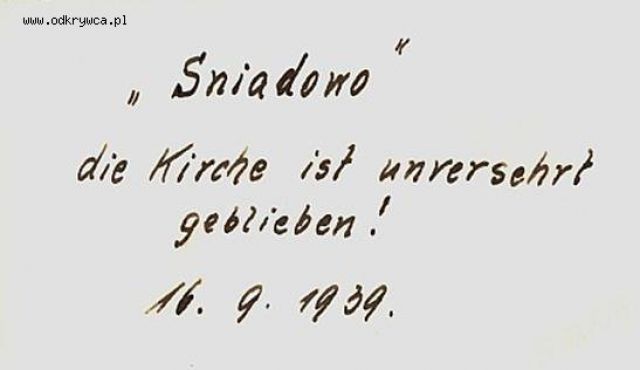 www.odkrywca.pl
„Sniadowo“
die Kirche ist unversehrt
geblieben!
16. 9. 1939.